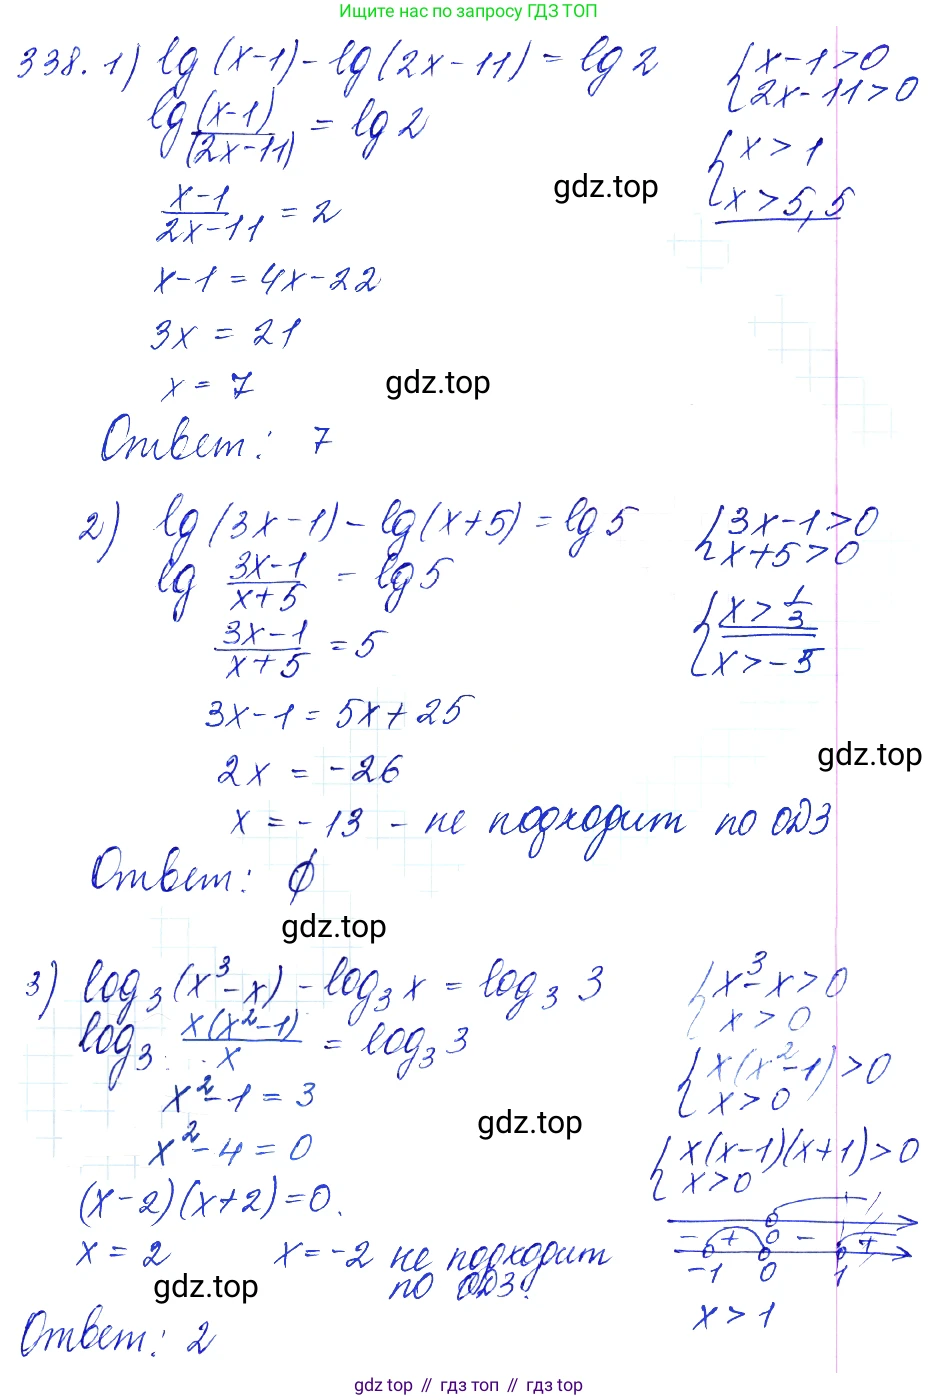 Ищите нас по запросу ГДЗ ТОП
338. 1) lg(x-1) - lg(2x-11) = lg 2
{ x-1>0
{ 2x-11>0
lg (x-1)/(2x-11) = lg 2
{ x>1
{ x>5,5
gdz.top
(x-1)/(2x-11) = 2
x-1 = 4x-22
3x = 21
x = 7
gdz.top
Ответ: 7
2) lg(3x-1) - lg(x+5) = lg 5
{ 3x-1>0
{ x+5>0
lg (3x-1)/(x+5) = lg 5
{ x>1/3
{ x>-5
(3x-1)/(x+5) = 5
3x-1 = 5x+25
gdz.top
2x = -26
x = -13 - не подходит по ОДЗ
Ответ: ∅
gdz.top
3) log₃(x³-x) - log₃x = log₃3
{ x³-x>0
{ x>0
log₃ x(x²-1)/x = log₃3
{ x(x²-1)>0
{ x>0
x²-1 = 3
gdz.top
x²-4 = 0
{ x(x-1)(x+1)>0
{ x>0
(x-2)(x+2)=0.
0
- + - +
-1 0 1
x = 2 x = -2 не подходит
по ОДЗ.
gdz.top
x>1
Ответ: 2
gdz.top // гдз топ // gdz.top